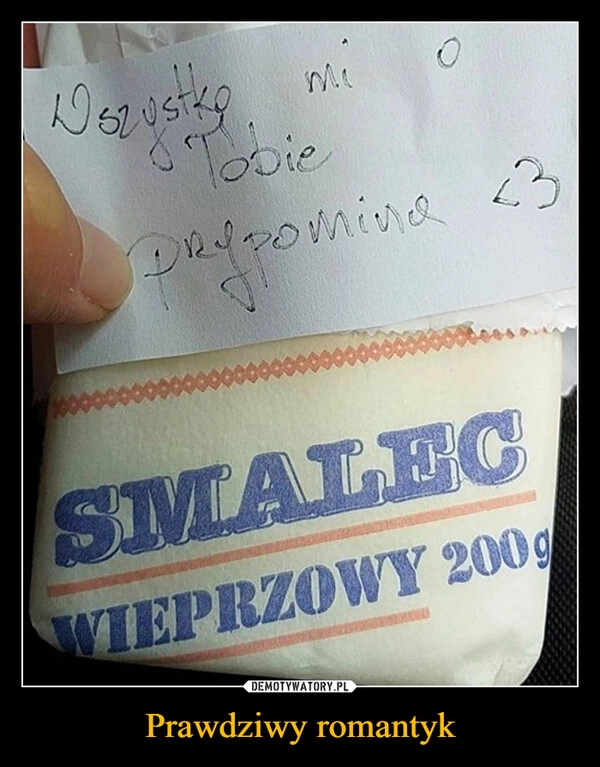 Wszystko mi o
Tobie
przypomina <3
SMALEC
WIEPRZOWY 200g
DEMOTYWATORY.PL
Prawdziwy romantyk